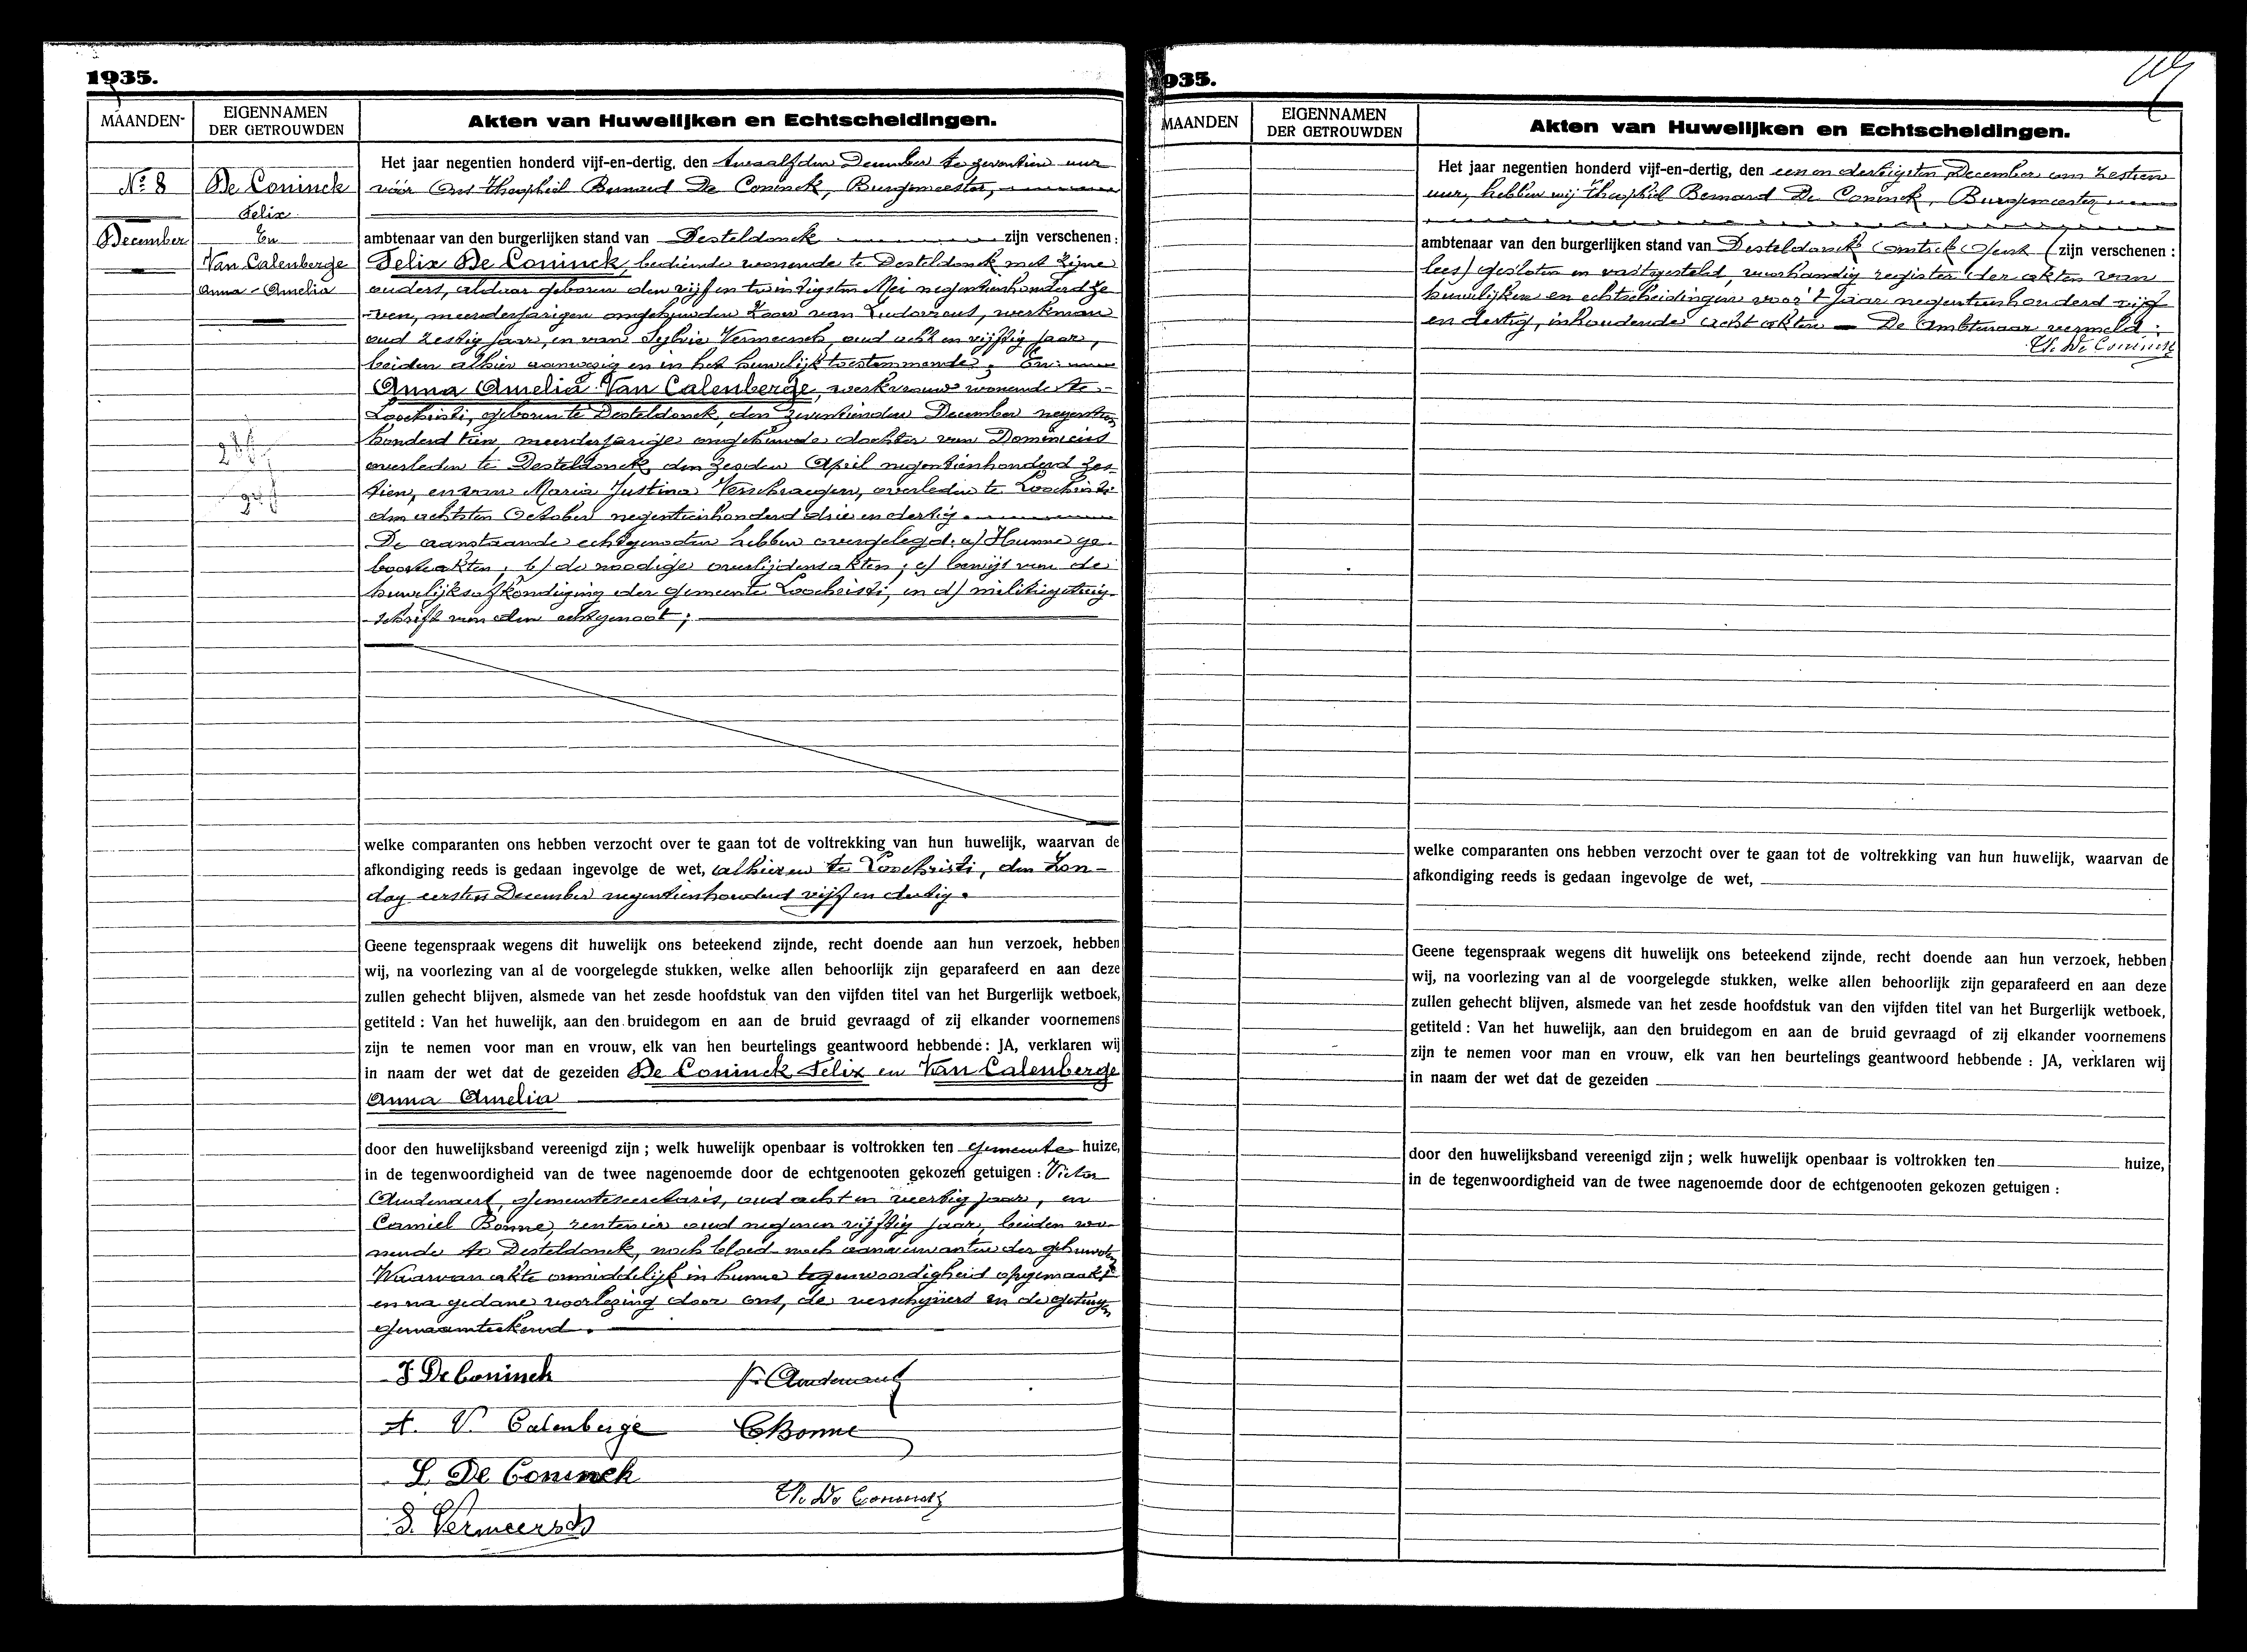 1935.
MAANDEN
EIGENNAMEN
DER GETROUWDEN
Akten van Huwelijken en Echtscheidingen.
Nº 8
December
De Coninck
Felix
En
Van Calenberge
Anna-Amelia
Het jaar negentien honderd vijf-en-dertig, den twaalfden December te zeventien uur
vóór Ons Theophiel Bernard De Coninck, Burgemeester,
ambtenaar van den burgerlijken stand van Desteldonck zijn verschenen:
Felix De Coninck, bediende wonende te Desteldonck met zijne
ouders, aldaar geboren den vijf en twintigsten Mei negentienhonderd ze
ven, meerderjarigen ongehuwden zoon van Ludovicus, werkman
oud zestig jaar, en van Sylvie Vermeersch, oud acht en vijftig jaar,
beiden alhier aanwezig en in het huwelijk toestemmende; En:
Anna Amelia Van Calenberge, werkvrouw wonende te
Loochristi, geboren te Desteldonck, den zeventienden December negentien
honderd tien, meerderjarige ongehuwde dochter van Dominicus
overleden te Desteldonck den zesden April negentienhonderd zes-
tien, en van Maria Justina Verschraegen, overleden te Loochristi
den achtsten October negentienhonderd drie en dertig.
De aanstaande echtgenoten hebben overgelegd: a) Hunne ge-
boorteakten; b) de noodige overlijdensakten; c) bewijs van de
huwelijksafkondiging der gemeente Loochristi, en d) militiegetuig-
schrift van den echtgenoot;
welke comparanten ons hebben verzocht over te gaan tot de voltrekking van hun huwelijk, waarvan de
afkondiging reeds is gedaan ingevolge de wet, alhier en te Loochristi, den Zon-
dag eersten December negentienhonderd vijf en dertig.
Geene tegenspraak wegens dit huwelijk ons beteekend zijnde, recht doende aan hun verzoek, hebben
wij, na voorlezing van al de voorgelegde stukken, welke allen behoorlijk zijn geparafeerd en aan deze
zullen gehecht blijven, alsmede van het zesde hoofdstuk van den vijfden titel van het Burgerlijk wetboek,
getiteld: Van het huwelijk, aan den bruidegom en aan de bruid gevraagd of zij elkander voornemens
zijn te nemen voor man en vrouw, elk van hen beurtelings geantwoord hebbende: JA, verklaren wij
in naam der wet dat de gezeiden De Coninck Felix en Van Calenberge
Anna Amelia
door den huwelijksband vereenigd zijn; welk huwelijk openbaar is voltrokken ten gemeente huize,
in de tegenwoordigheid van de twee nagenoemde door de echtgenooten gekozen getuigen: Victor
Audenaert, gemeentesecretaris, oud acht en veertig jaar, en
Camiel Bonne, rentenier oud negen en vijftig jaar, beiden wo-
nende te Desteldonck, noch bloed- noch aanverwanten der gehuwden
Waarvan akte onmiddelijk in hunne tegenwoordigheid opgemaakt
en na gedane voorlezing door ons, de verschijners en de getuigen
genaamteekend.
F De Coninck
V. Audenaert
A. V. Calenberge
C Bonne
L. De Coninck
Th. De Coninck
S. Vermeersch
935.
MAANDEN
EIGENNAMEN
DER GETROUWDEN
Akten van Huwelijken en Echtscheidingen.
Het jaar negentien honderd vijf-en-dertig, den een en dertigsten December om zestien
uur, hebben wij Theophiel Bernard De Coninck, Burgemeester
ambtenaar van den burgerlijken stand van Desteldonck (zijn verschenen:
lees) gesloten en vastgesteld, register der akten van
huwelijken en echtscheidingen voor 't jaar negentienhonderd vijf
en dertig, inhoudende acht akten — De Ambtenaar vermeld:
Th. De Coninck
welke comparanten ons hebben verzocht over te gaan tot de voltrekking van hun huwelijk, waarvan de
afkondiging reeds is gedaan ingevolge de wet,
Geene tegenspraak wegens dit huwelijk ons beteekend zijnde, recht doende aan hun verzoek, hebben
wij, na voorlezing van al de voorgelegde stukken, welke allen behoorlijk zijn geparafeerd en aan deze
zullen gehecht blijven, alsmede van het zesde hoofdstuk van den vijfden titel van het Burgerlijk wetboek,
getiteld: Van het huwelijk, aan den bruidegom en aan de bruid gevraagd of zij elkander voornemens
zijn te nemen voor man en vrouw, elk van hen beurtelings geantwoord hebbende: JA, verklaren wij
in naam der wet dat de gezeiden
door den huwelijksband vereenigd zijn; welk huwelijk openbaar is voltrokken ten huize,
in de tegenwoordigheid van de twee nagenoemde door de echtgenooten gekozen getuigen: